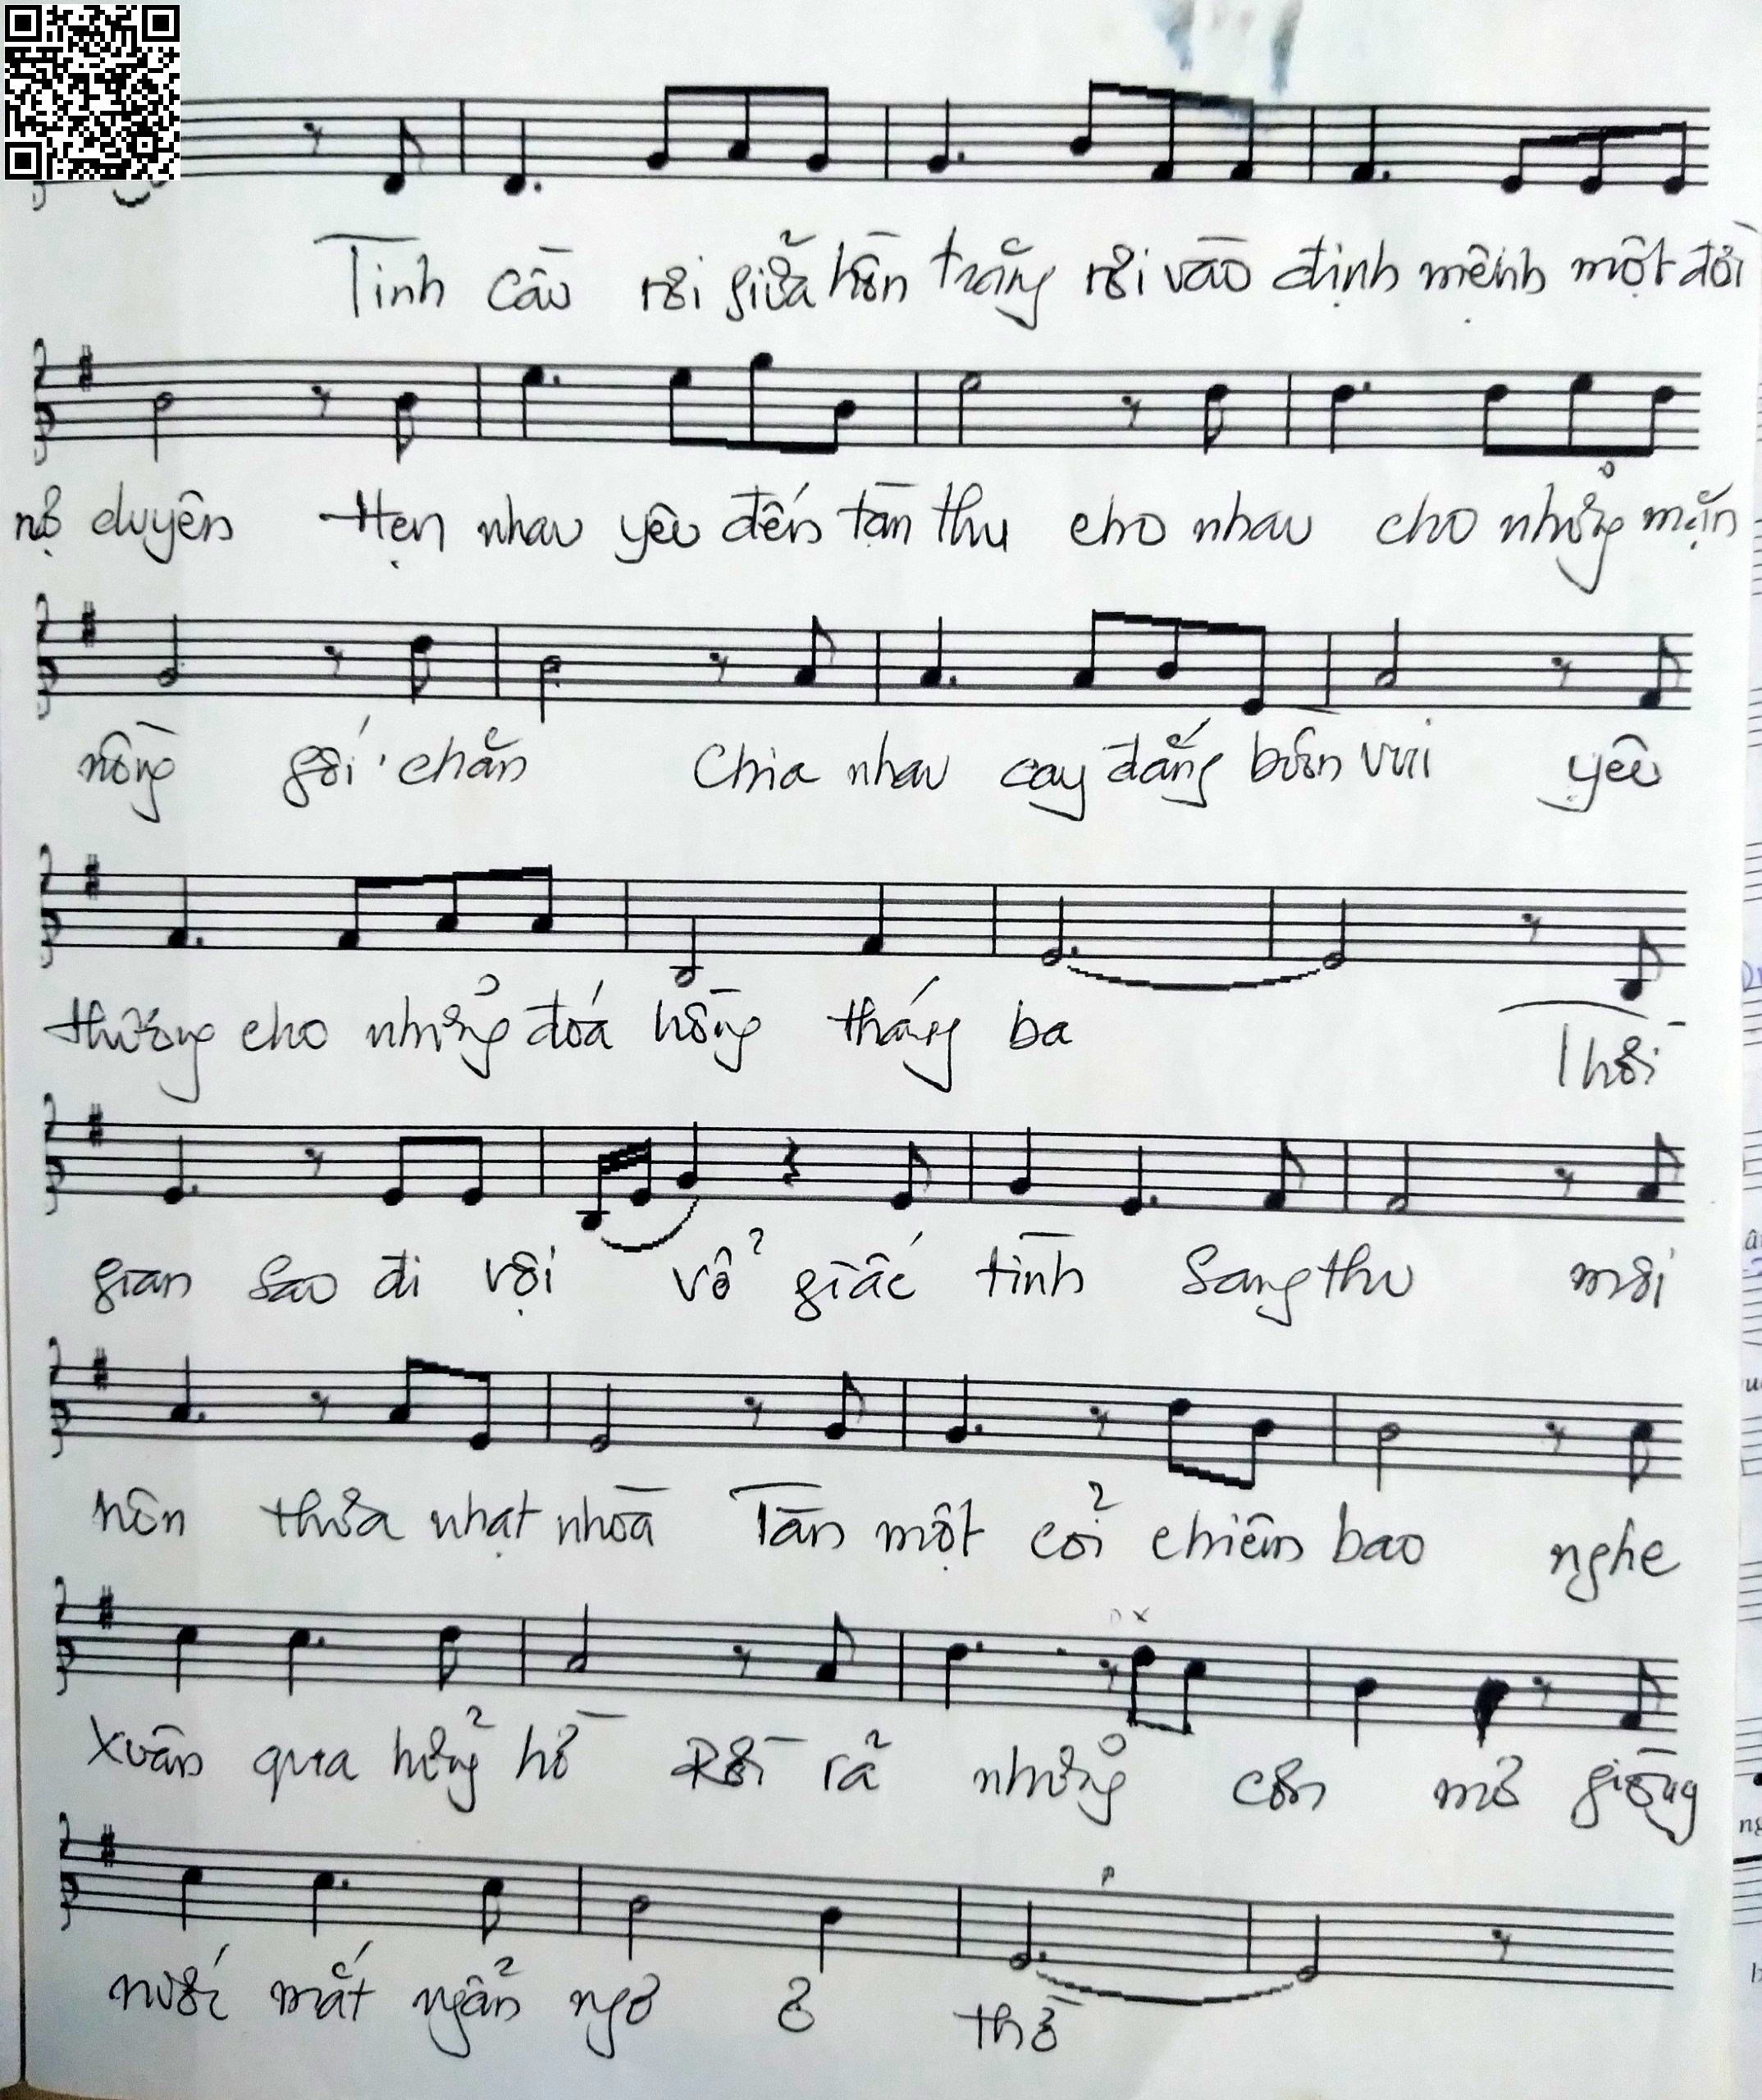 Tình cầu rơi giữa hồn trắng rơi vào định mệnh một đời
nợ duyên Hẹn nhau yêu đến tàn thu cho nhau cho những mặn
nồng gối chăn Chia nhau cay đắng buồn vui yêu
thương cho những đoá hồng tháng ba Thời
gian sao đi vội vỗ giấc tình sang thu môi
hôn thừa nhạt nhoà Tàn một cỏi chiêm bao nghe
Xuân qua hững hờ Rồi rã những cơn mơ giòng
nước mắt ngẩn ngơ ơ thờ